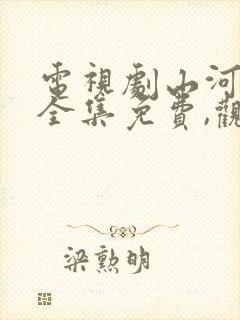 電視劇山河
全集免費,觀
梁勲明